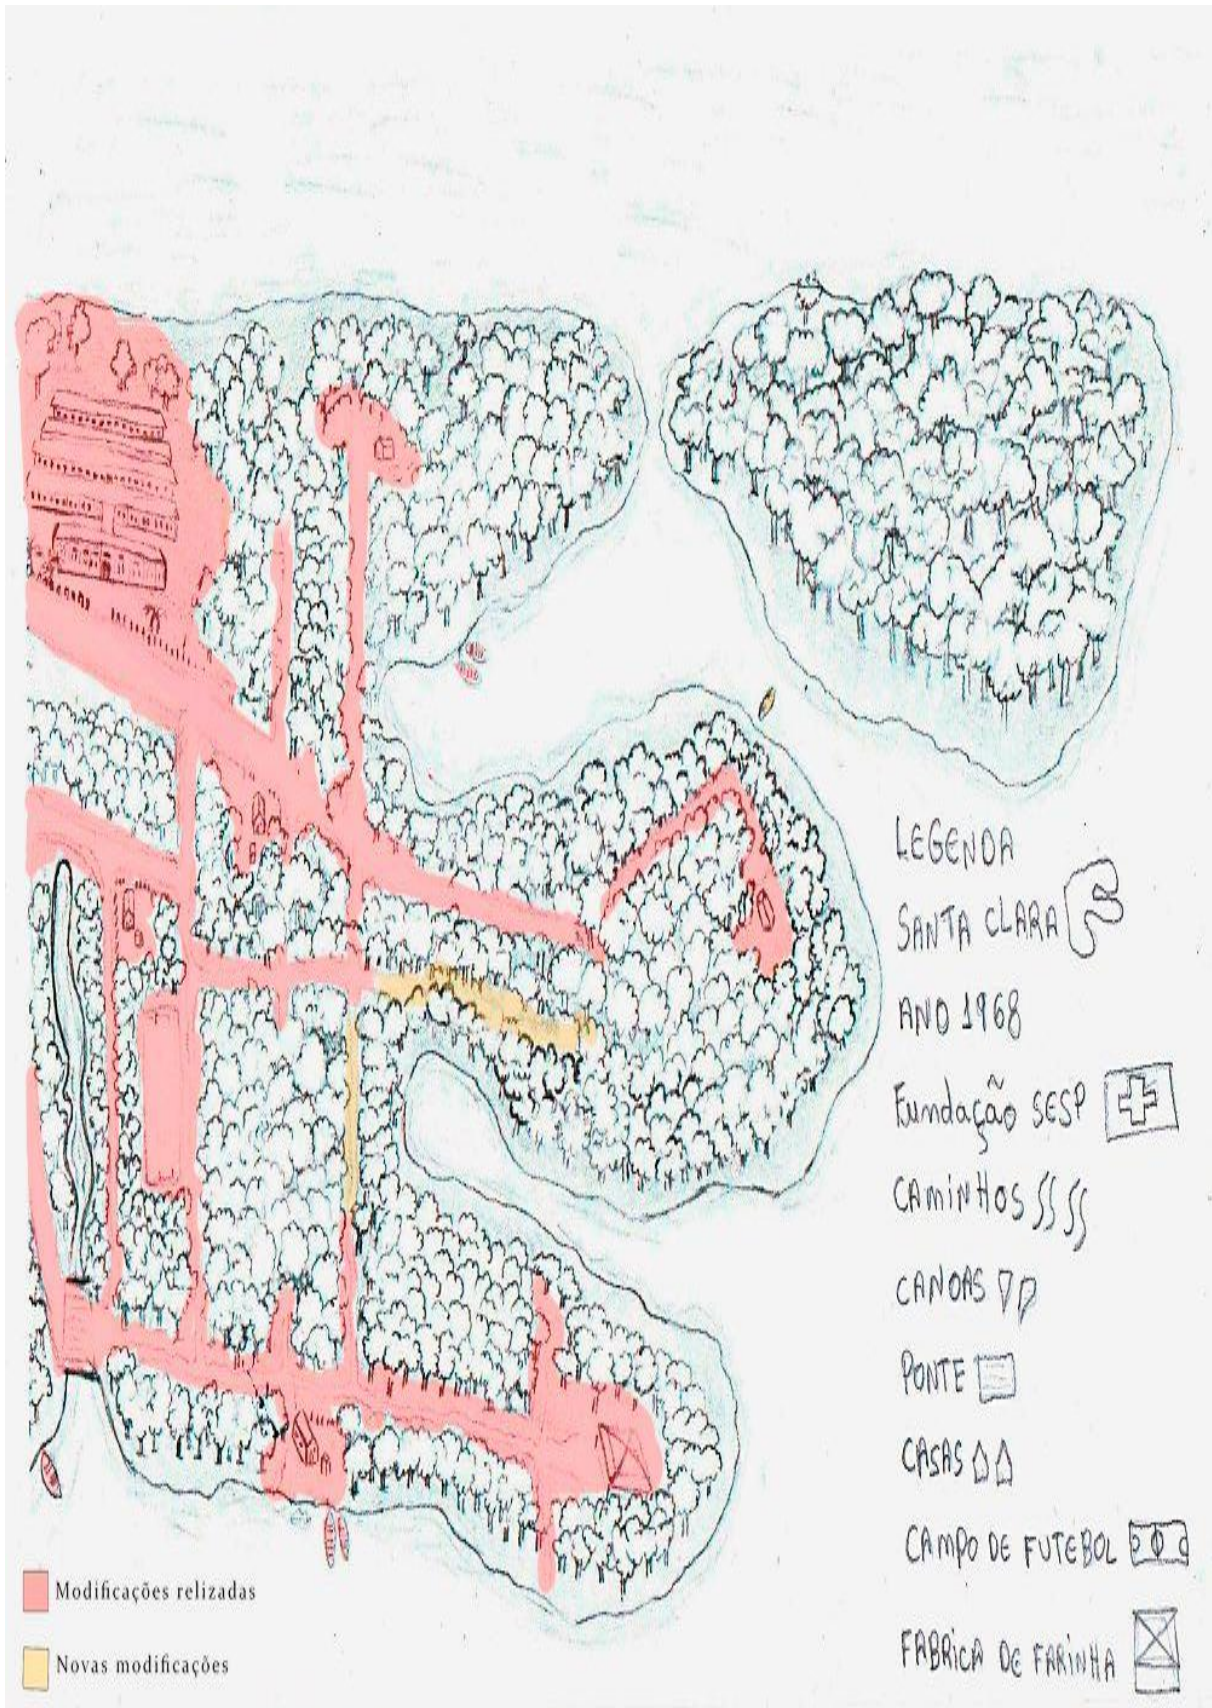 LEGENDA
SANTA CLARA
ANO 1968
Fundação SESP
CAMINHOS
CANOAS
PONTE
CASAS
CAMPO DE FUTEBOL
FABRICA DE FARINHA
Modificações relizadas
Novas modificações